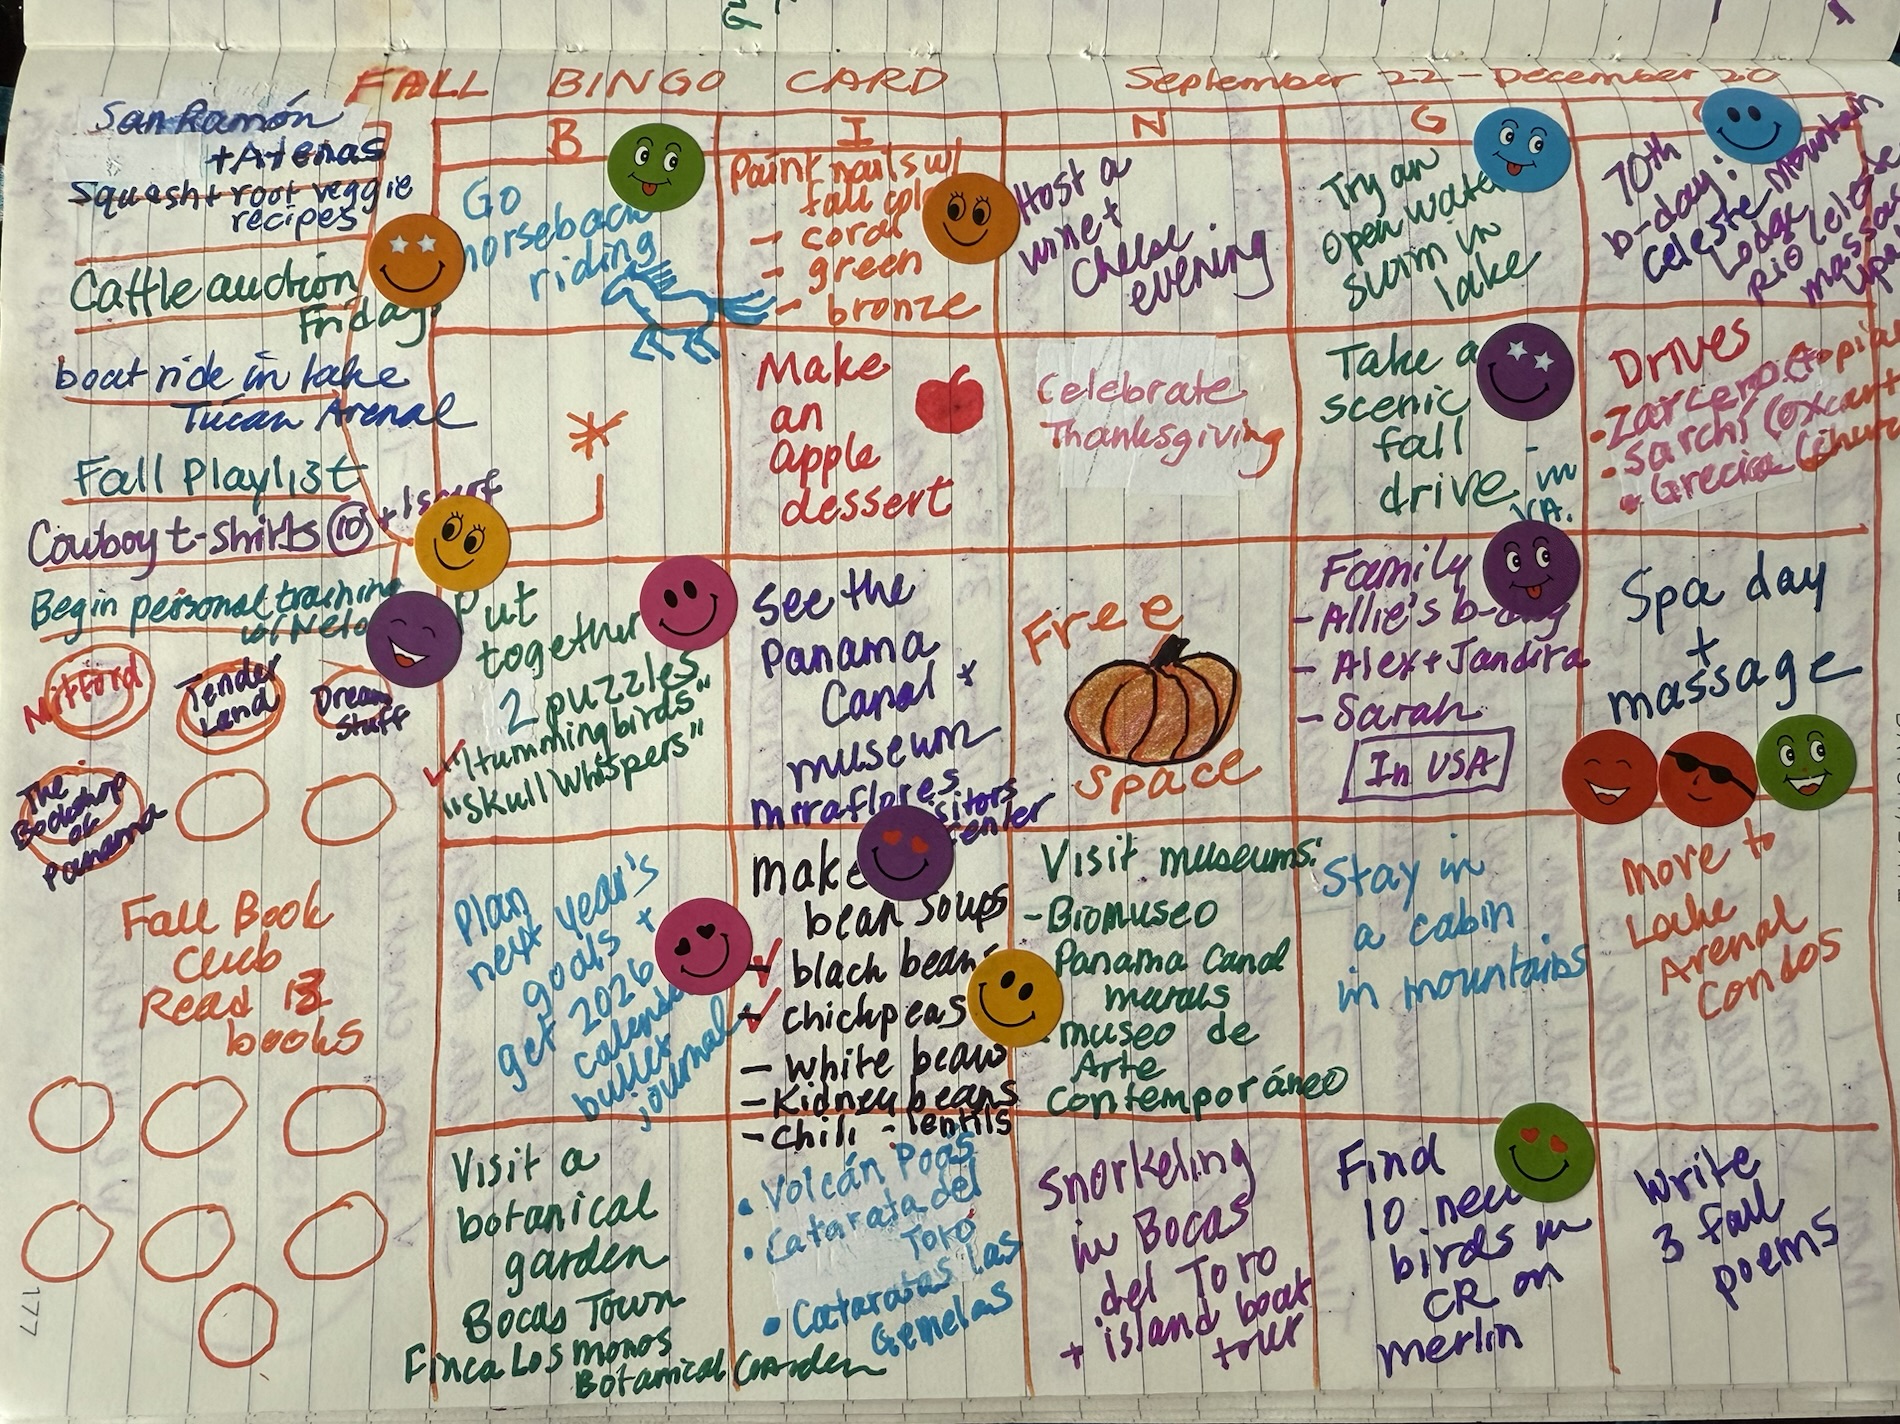 FALL BINGO CARD September 22 - December 20
San Ramón
+ Atenas
Squash + root veggie
recipes
Cattle auction
Friday
boat ride in lake
Tucan Arenal
Fall Playlist
Cowboy t-shirts 10 + 1 scarf
Begin personal training
w/ Nelo
Mitford
Tender
Land
Dream
Stuff
The
Bookshop
of
Panama
Fall Book
Club
Read 13
books
177
B
I
N
G
Go
horseback
riding
Paint nails w/
fall
- coral
- green
- bronze
Host a
wine +
Cheese
evening
Try an
open water
swim in
lake
70th
b-day:
Celeste Mountain
Lodge
Rio Celeste
massage
spa
Make
an
apple
dessert
Celebrate
Thanksgiving
Take a
scenic
fall
drive in
VA.
Drives
• Zarcero (topia
• Sarchí (oxcart
• Grecia (church
Put
together
2 puzzles
"Hummingbirds"
"Skull Whispers"
See the
Panama
Canal +
museum
Miraflores
Visitors
Center
Free
Space
Family
- Allie's b-day
- Alex + Jandira
- Sarah
In USA
Spa day
+
massage
Plan
next year's
goals +
get 2026
calendar
bullet
journal
Make
bean soups
- black beans
- chickpeas
- white beans
- Kidney beans
- chili - lentils
Visit museums:
- Biomuseo
Panama Canal
murals
- museo de
Arte
Contemporáneo
Stay in
a cabin
in mountains
Move to
Lake
Arenal
Condos
Visit a
botanical
garden
Bocas Town
Finca Los Monos
Botanical Garden
• Volcán Poás
• Catarata del
Toro
• Cataratas Las
Gemelas
Snorkeling
in Bocas
del Toro
+ island boat
tour
Find
10 new
birds in
CR on
merlin
Write
3 fall
poems